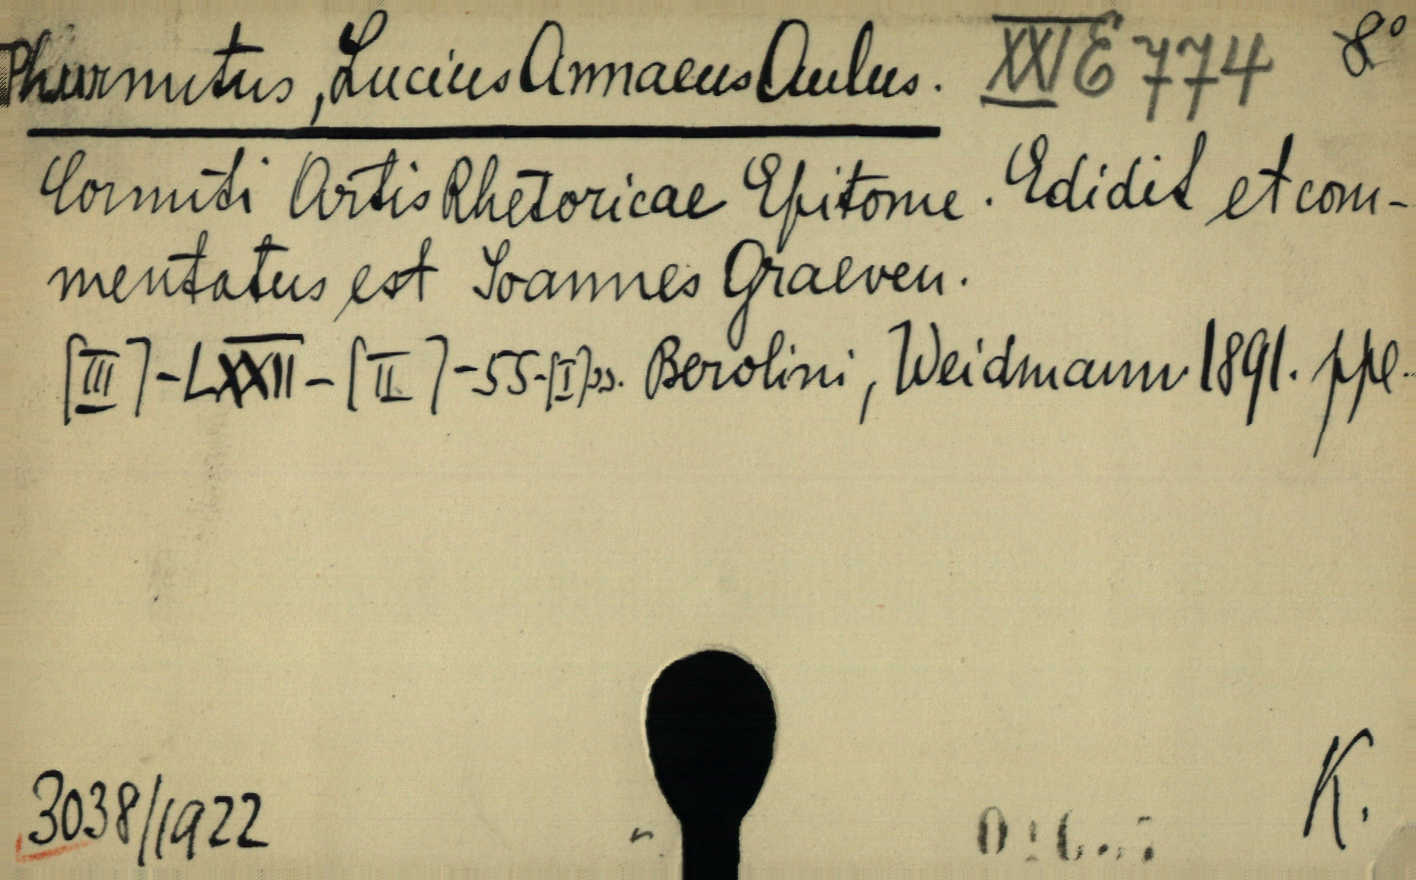 Phurnutus, Lucius Annaeus Aulus. XXI E 774 8°
Cornuti Artis Rhetoricae Epitome. Edidit et com-
mentatus est Ioannes Graeven.
[III]-LXXII-[II]-55-[I] ss. Berolini, Weidmann 1891. ppl.
3038/1922
K.